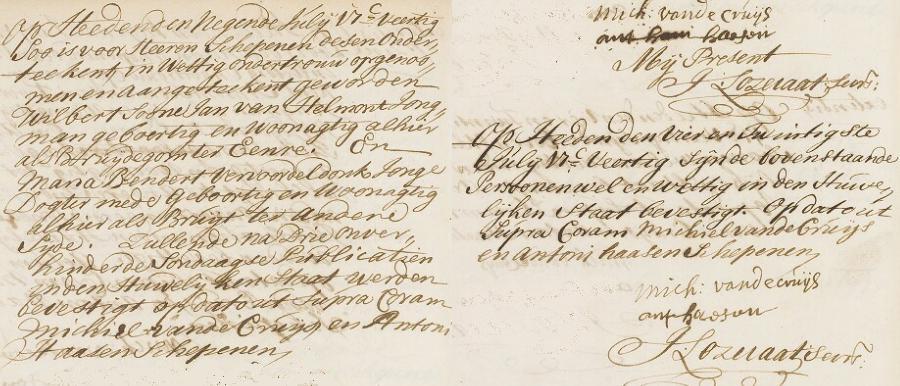 Op Heeden den Negende Julÿ 17c Veertig
Soo is voor Heeren Schepenen desen Onder-
teekent, in Wettig ondertrouw opgenoo-
men en aangeteekent geworden
Wilbert Soone Jan van Helmont Jong
man geboortig en woonagtig alhier
als Bruydegom ter Eenre. En
Maria Bendert Vervoordeldonk Jonge
Dogter mede Geboortig en Woonagtig
alhier als Bruijt ter Andere
Sijde. Zullende na Drie onver-
hinderde Sondaagse Publicatien
in den Huwelijken Staat werden
bevestigt op dato ut Supra Coram
Michiel van de Cruijs en Antoni
Haasen Schepenen
Mich: vande Cruÿs
ant haasen
Mij Present
J Lozecaat Secrts:
Op Heeden den Vier en Twintigste
Julij 17c Veertig Sijnde bovenstaande
Persoonen wel en Wettig in den Huwe-
lijken Staat bevestigt. Op dato ut
Supra Coram Michiel van de Cruijs
en Antoni haasen Schepenen
Mich: vande Cruÿs
ant haasen
J Lozecaat Secrts: